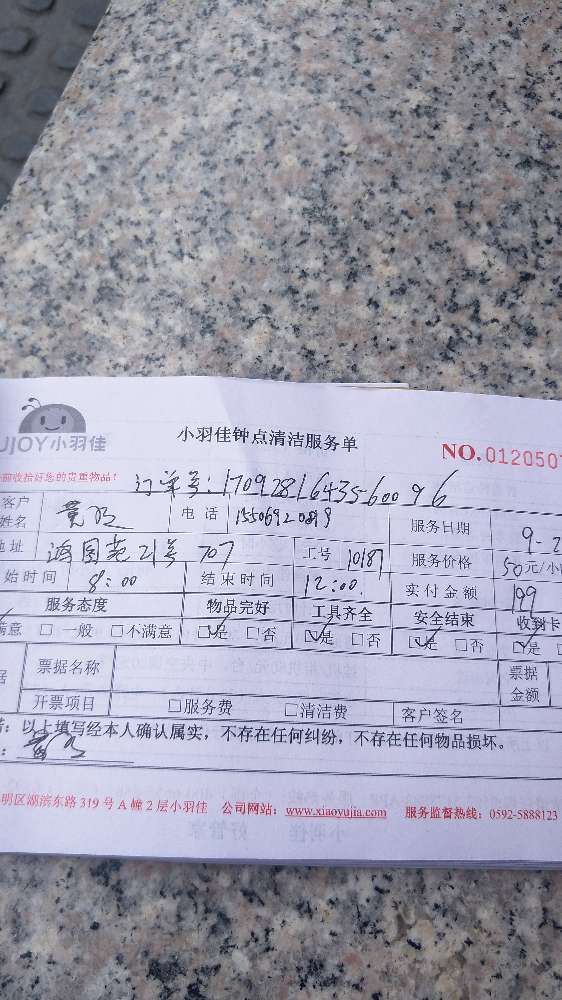 UJOY小羽佳
小羽佳钟点清洁服务单
NO.012050
前收拾好您的贵重物品！
订单号：170928164356009 6
客户姓名 电话 服务日期 9-2
地址 鸿图苑21号 707 工号 10187 服务价格 50元/小
始时间 8:00 结束时间 12:00 实付金额 199
服务态度 物品完好 工具齐全 安全结束 收到卡
满意 □一般 □不满意 ☑是 □否 ☑是 □否 ☑是 □否 ☑是
据 票据名称 票据金额
开票项目 □服务费 □清洁费 客户签名
：以上填写经本人确认属实，不存在任何纠纷，不存在任何物品损坏。
明区湖滨东路 319 号 A 幢 2 层小羽佳 公司网站：www.xiaoyujia.com 服务监督热线：0592-5888123